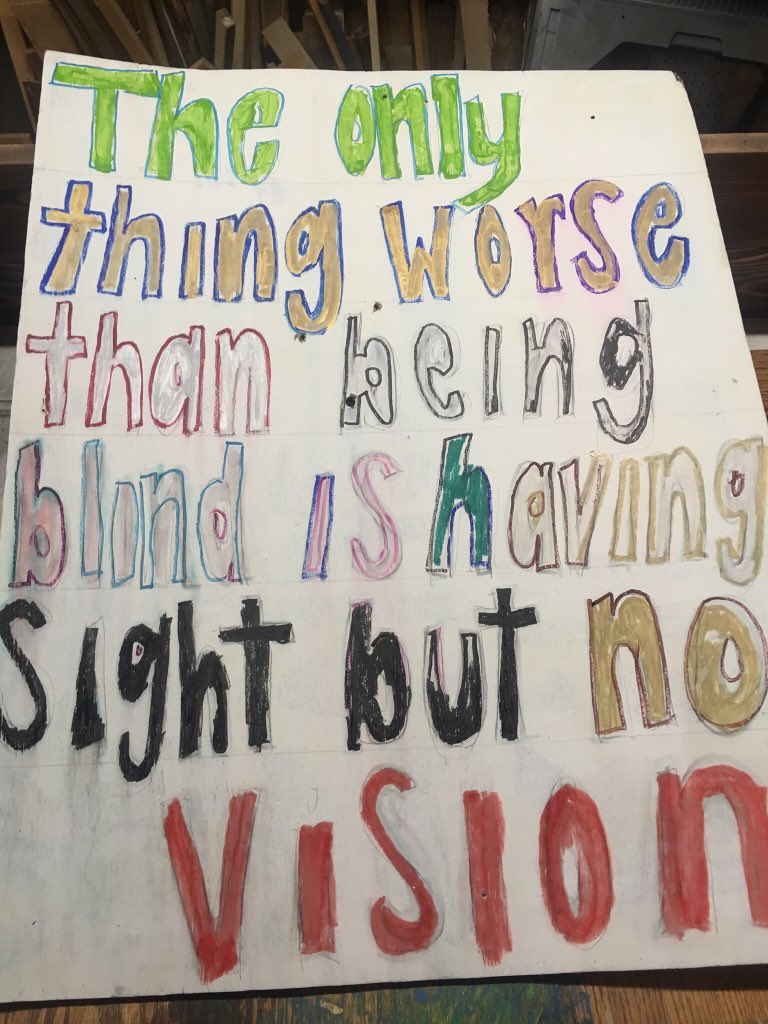 The only
thing worse
than being
blind is having
Sight but no
Vision